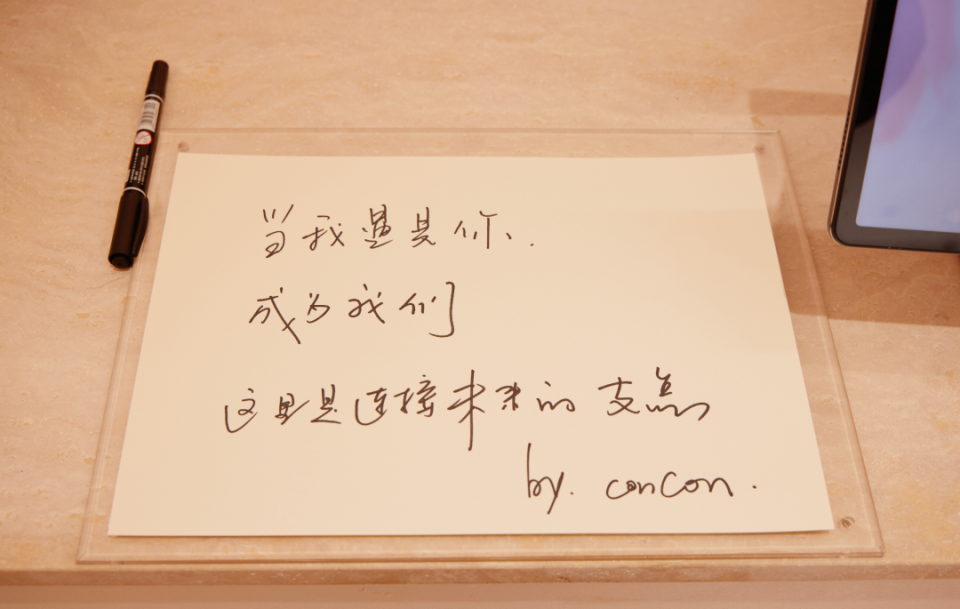 当我遇見你、
成为我们
这里是连接未来的支点
by. concon.